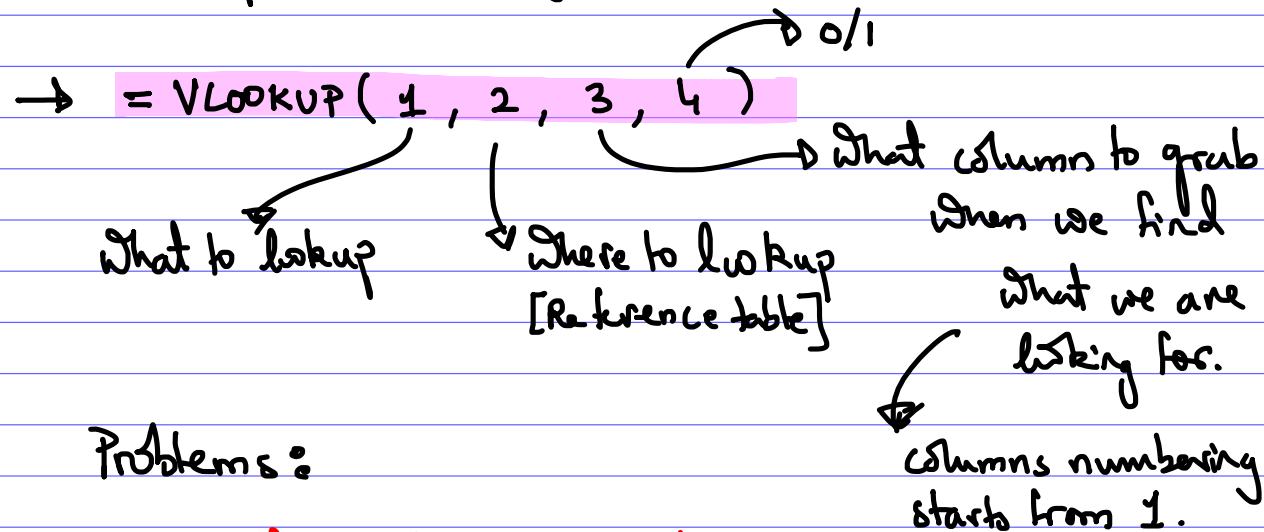 0/1
→ = VLOOKUP( 1 , 2 , 3 , 4 )
What to lookup
Where to lookup
[Reference table]
What column to grab
when we find
what we are
looking for.
columns numbering
starts from 1.
Problems: